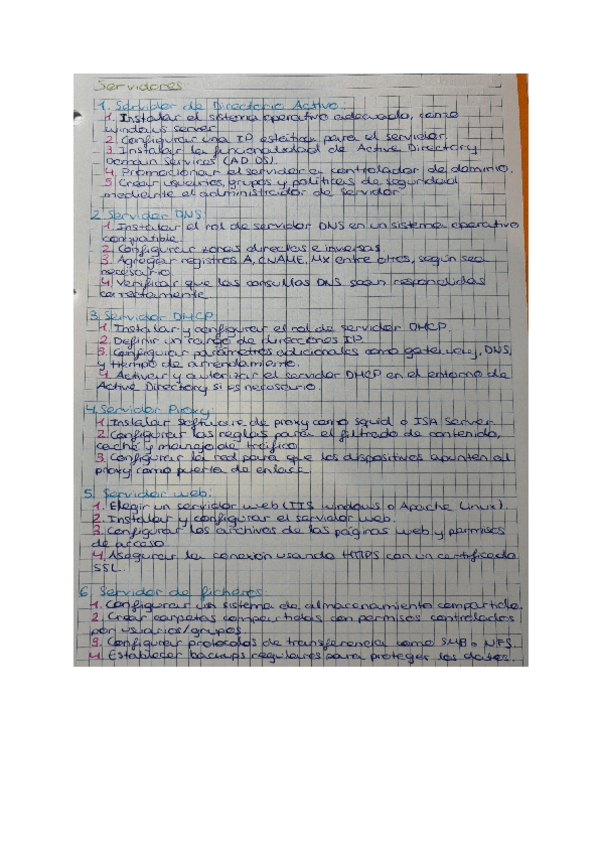 Servidores:
1. Servidor de Directorio Activo:
1. Instalar el sistema operativo adecuado, como
windows server.
2. Configurar una IP estática para el servidor.
3. Instalar la funcionalidad de Active Directory
Domain Services (AD DS).
4. Promocionar el servidor a controlador de dominio.
5. Crear usuarios, grupos y políticas de seguridad
mediante el administrador de servidor
2. Servidor DNS
1. Instalar el rol de servidor DNS en un sistema operativo
compatible.
2. Configurar zonas directas e inversas.
3. Agregar registros A, CNAME, MX entre otros, según sea
necesario.
4. Verificar que las consultas DNS sean respondidas
correctamente
3. Servidor DHCP
1. Instalar y configurar el rol de servidor DHCP.
2. Definir un rango de direcciones IP.
3. Configurar parámetros adicionales como gateway, DNS,
y tiempo de arrendamiento.
4. Activar y autorizar el servidor DHCP en el entorno de
Active Directory si es necesario.
4. Servidor Proxy:
1. Instalar software de proxy como squid o ISA Server.
2. Configurar las reglas para el filtrado de contenido,
caché y manejo de tráfico.
3. Configurar la red para que los dispositivos apunten al
proxy como puerta de enlace
5. Servidor web:
1. Elegir un servidor web (IIS windows o Apache Linux).
2. Instalar y configurar el servidor web.
3. Configurar los archivos de las páginas web y permisos
de acceso
4. Asegurar la conexión usando HTTPS con un certificado
SSL.
6. Servidor de ficheros:
1. Configurar un sistema de almacenamiento compartido.
2. Crear carpetas compartidas con permisos controlados
por usuarios/grupos
3. Configurar protocolos de transferencia como SMB o NFS.
4. Establecer backups regulares para proteger los datos.